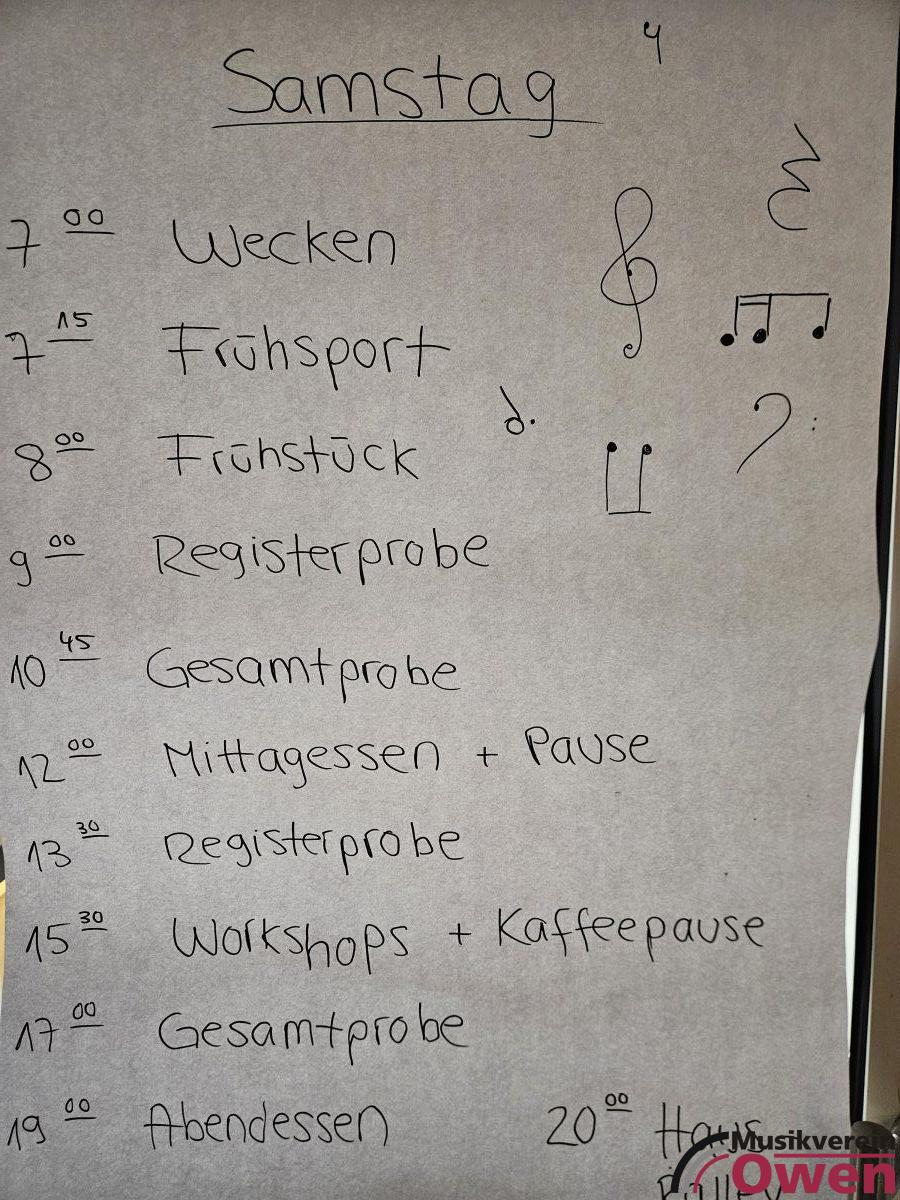 Samstag
7 00 Wecken
7 15 Frühsport
8 00 Frühstück
9 00 Registerprobe
10 45 Gesamtprobe
12 00 Mittagessen + Pause
13 30 Registerprobe
15 30 Workshops + Kaffeepause
17 00 Gesamtprobe
19 00 Abendessen 20 00 Haus
Musikverein
Owen